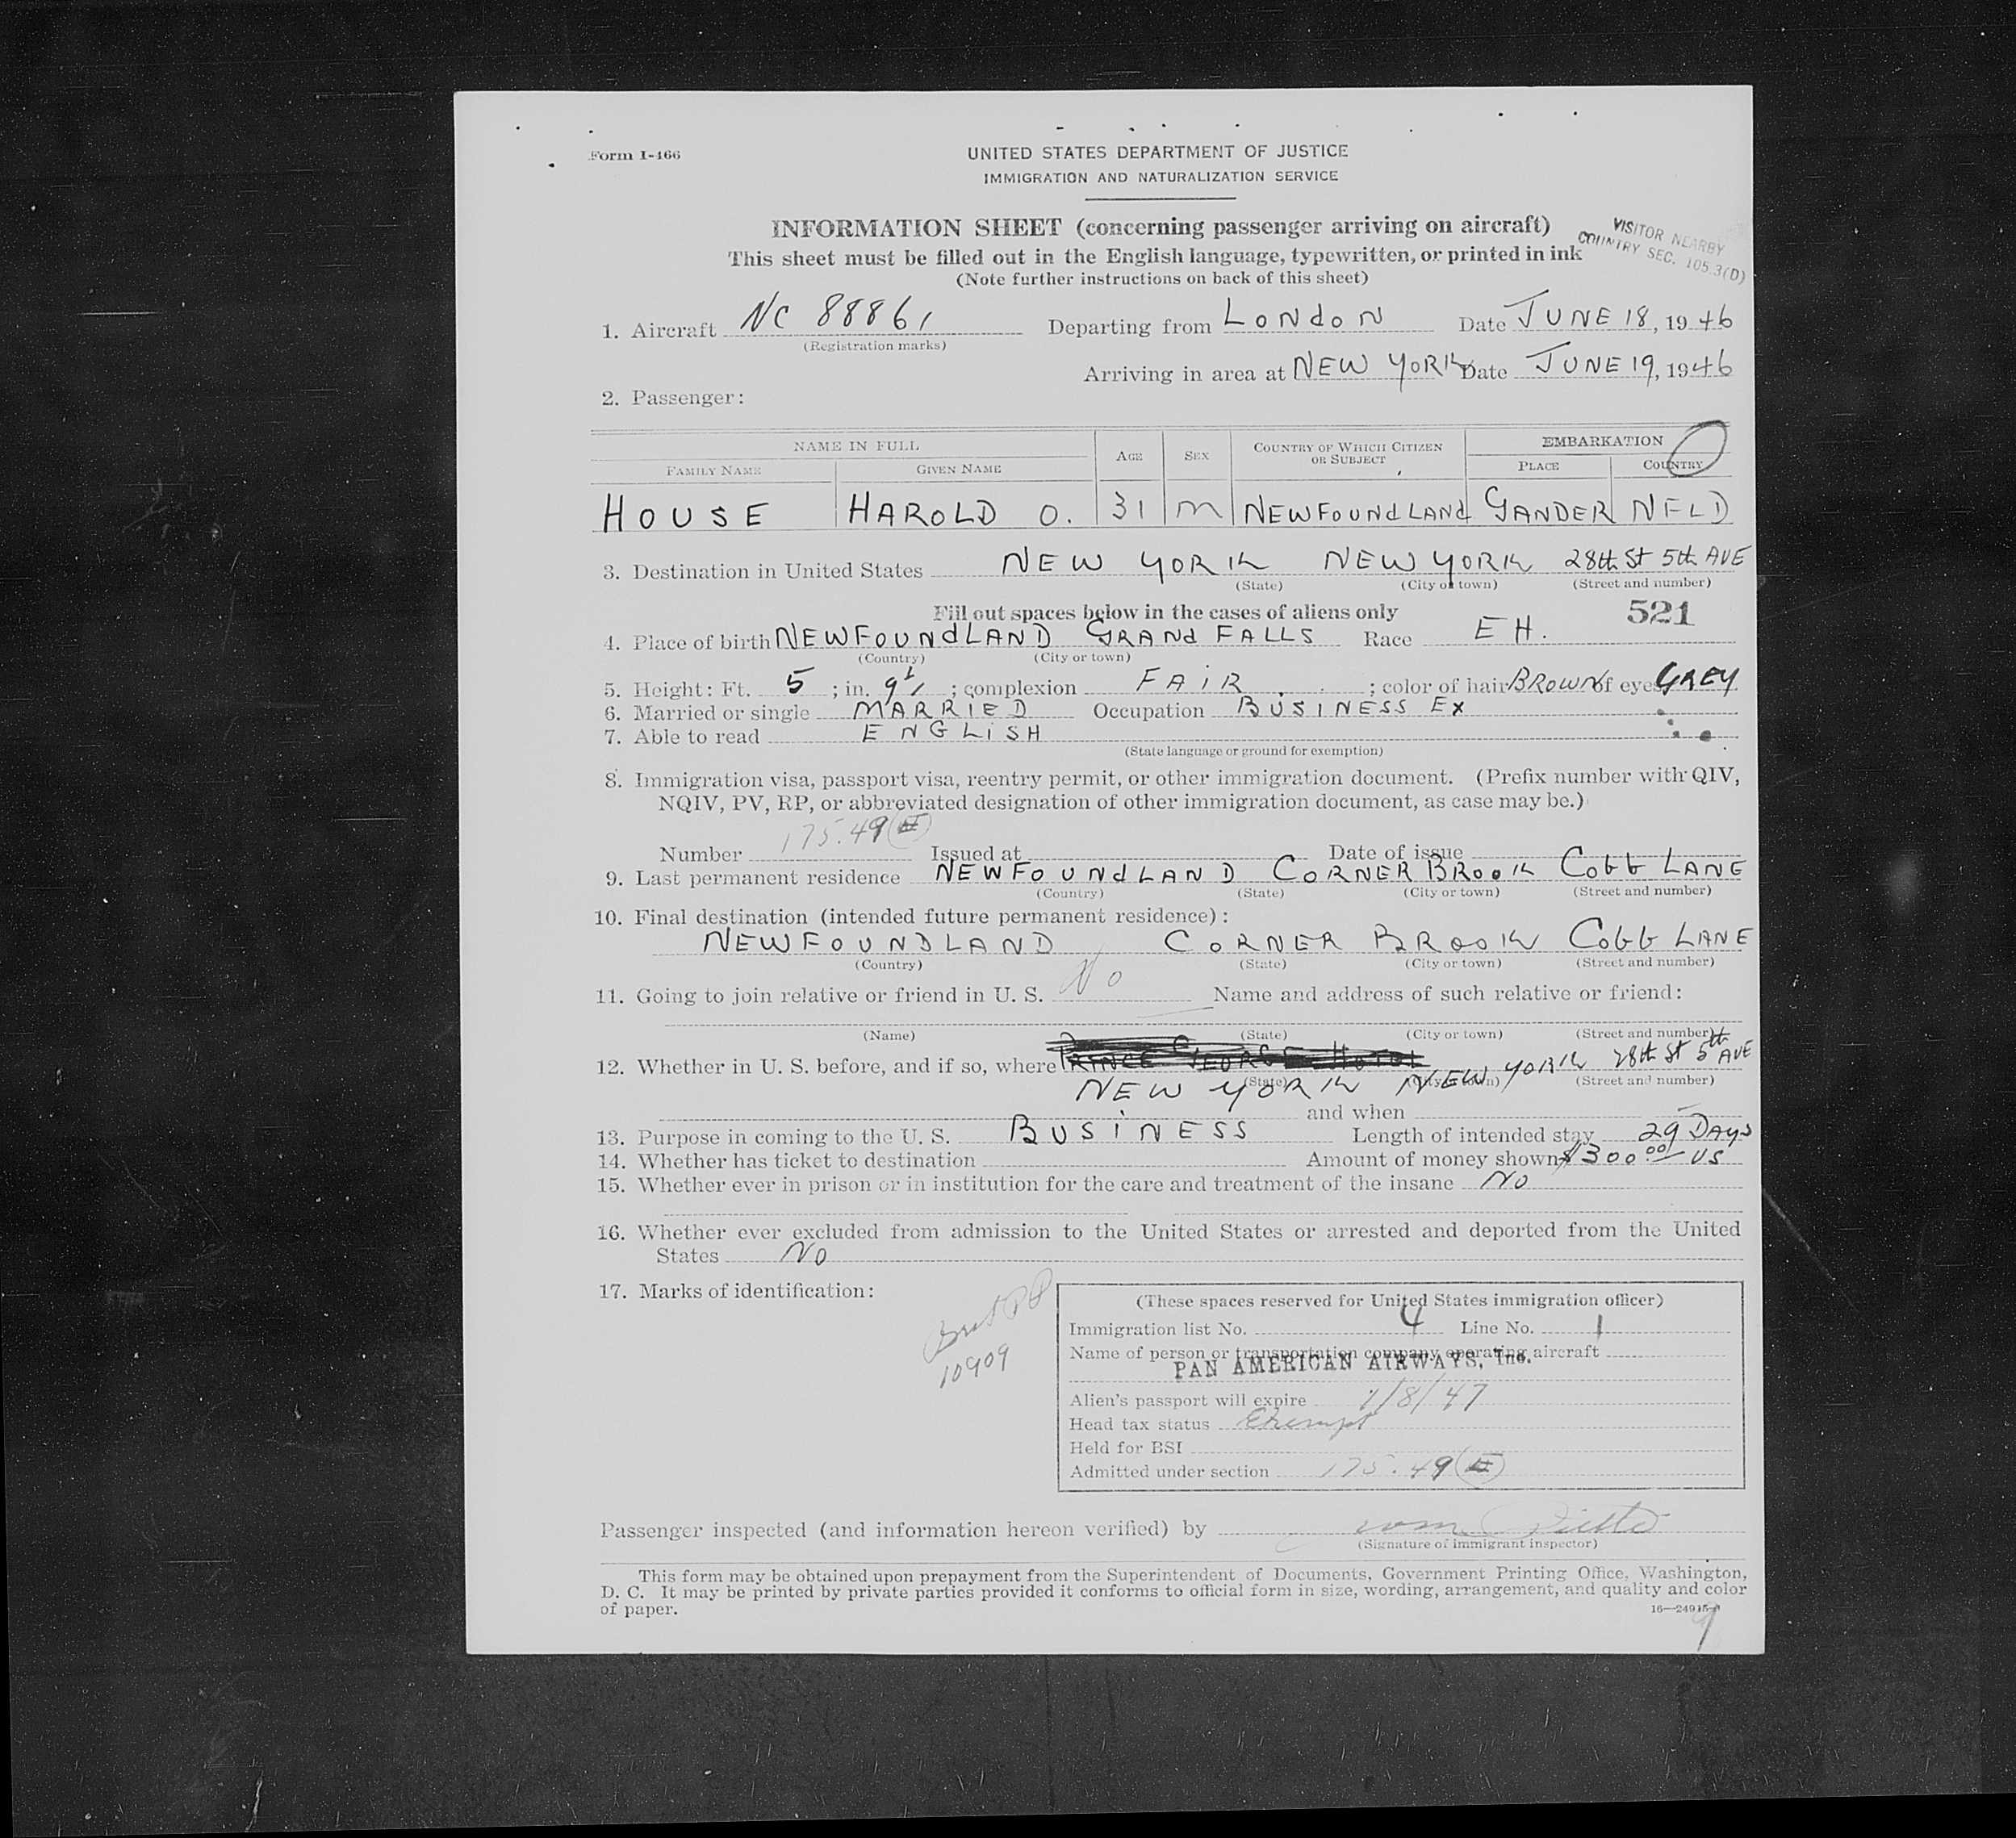 Form I-466
UNITED STATES DEPARTMENT OF JUSTICE
IMMIGRATION AND NATURALIZATION SERVICE
INFORMATION SHEET (concerning passenger arriving on aircraft)
This sheet must be filled out in the English language, typewritten, or printed in ink
(Note further instructions on back of this sheet)
VISITOR NEARBY
COUNTRY SEC. 105.3(D)
1. Aircraft NC 88861 Departing from LONdON Date JUNE 18, 1946
(Registration marks)
Arriving in area at NEW YORK Date JUNE 19, 1946
2. Passenger:
NAME IN FULL AGE SEX COUNTRY OF WHICH CITIZEN OR SUBJECT EMBARKATION
FAMILY NAME GIVEN NAME PLACE COUNTRY
HOUSE HAROLD O. 31 M NEWFOUNdLANd GANDER NFLD
3. Destination in United States NEW YORK NEW YORK 28th St 5th AVE
(State) (City or town) (Street and number)
Fill out spaces below in the cases of aliens only 521
4. Place of birth NEWFOUNdLAND GRANd FALLS Race EH.
(Country) (City or town)
5. Height: Ft. 5 ; in. 9½ ; complexion FAiR ; color of hair BROWN of eyes GREY
6. Married or single MARRIED Occupation BUSINESS Ex
7. Able to read ENGLiSH
(State language or ground for exemption)
8. Immigration visa, passport visa, reentry permit, or other immigration document. (Prefix number with QIV,
NQIV, PV, RP, or abbreviated designation of other immigration document, as case may be.)
Number 175.49 Issued at Date of issue
9. Last permanent residence NEWFOUNdLAND CORNER BROOK Cobb LANE
(Country) (State) (City or town) (Street and number)
10. Final destination (intended future permanent residence):
NEWFOUNDLAND CORNER BROOK Cobb LANE
(Country) (State) (City or town) (Street and number)
11. Going to join relative or friend in U. S. No Name and address of such relative or friend:
(Name) (State) (City or town) (Street and number)
12. Whether in U. S. before, and if so, where PRINCE GEORGE HOTEL 28th St 5th AVE
NEW YORK NEW YORK
(State) (City or town) (Street and number)
and when
13. Purpose in coming to the U. S. BUSiNESS Length of intended stay 29 DAYs
14. Whether has ticket to destination Amount of money shown $300.00 US
15. Whether ever in prison or in institution for the care and treatment of the insane No
16. Whether ever excluded from admission to the United States or arrested and deported from the United
States No
17. Marks of identification:
10909
(These spaces reserved for United States immigration officer)
Immigration list No. 4 Line No. 1
Name of person or transportation company operating aircraft
PAN AMERICAN AIRWAYS, Inc.
Alien's passport will expire 1/8/47
Head tax status Exempt
Held for BSI
Admitted under section 175.49
Passenger inspected (and information hereon verified) by
(Signature of immigrant inspector)
This form may be obtained upon prepayment from the Superintendent of Documents, Government Printing Office, Washington,
D. C. It may be printed by private parties provided it conforms to official form in size, wording, arrangement, and quality and color
of paper.